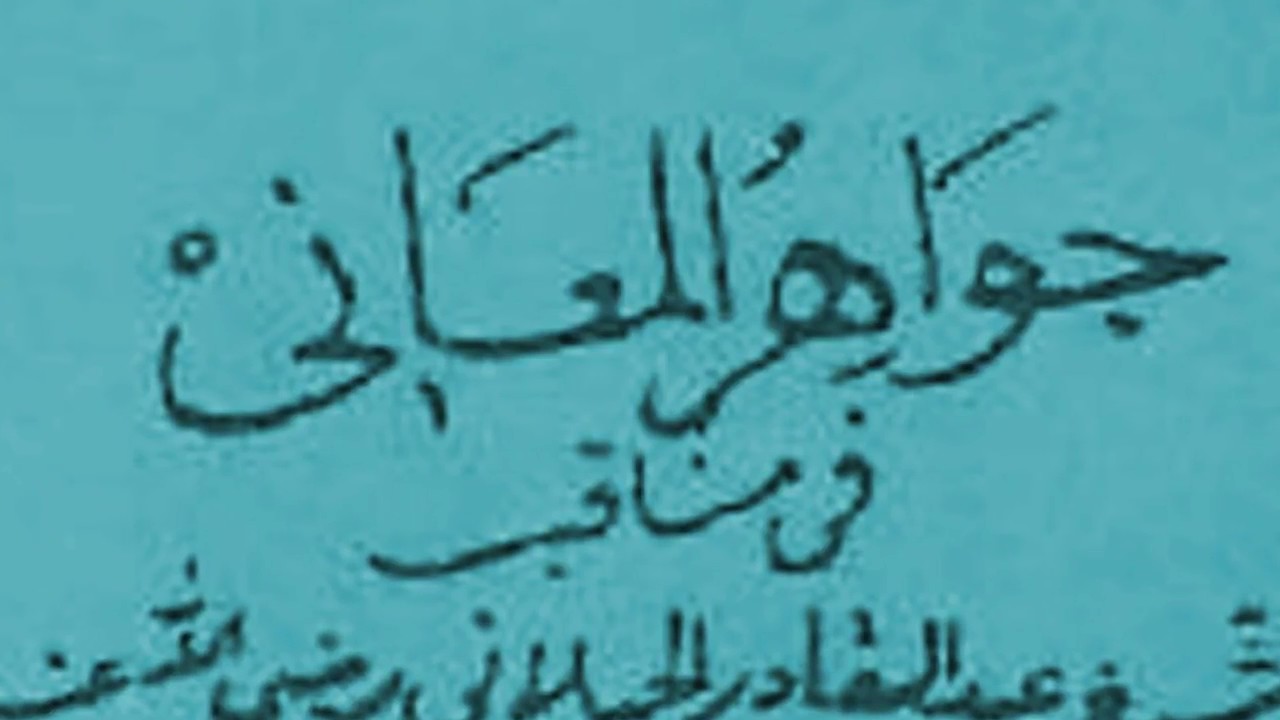 جَوَاهِرُ الْمَعَانِيْ
في مناقب
عبد القادر الجيلاني رضي الله عنه